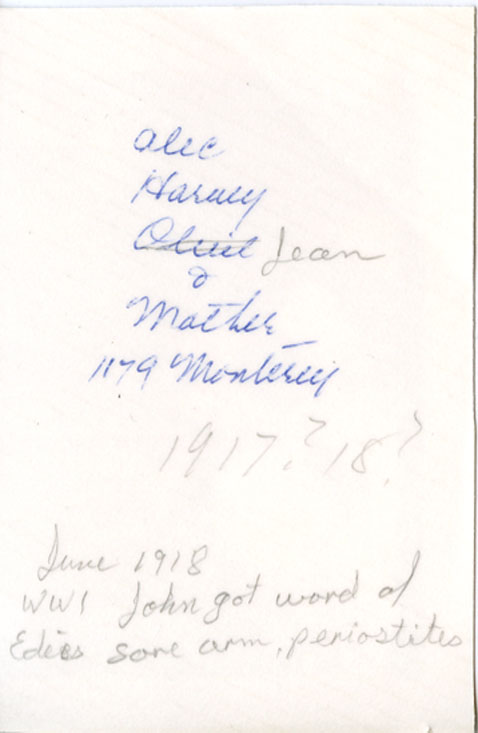 Alec
Harvey
Olive Jean
&
Mother
1179 Monterey
1917? 18?
June 1918
WW1 John got word of
Edies sore arm, periostites